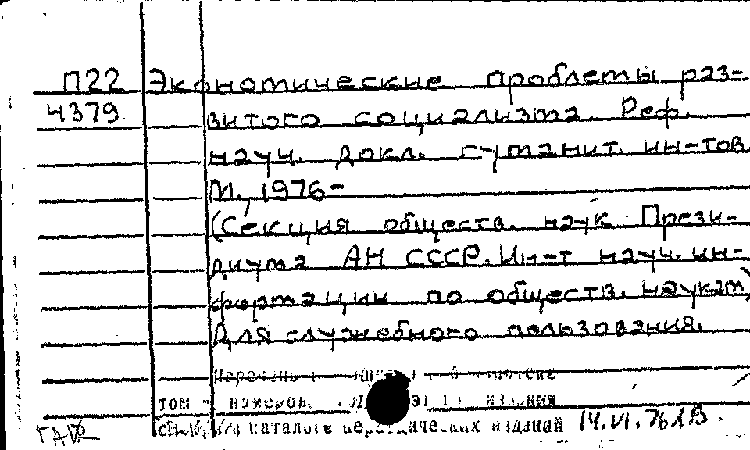 П22 Экономические проблемы раз-
4379 витого социализма. Реф.
науч. докл. гуманит. ин-тов.
М., 1976-
(Секция обществ. наук Прези-
диума АН СССР. Ин-т науч. ин-
формации по обществ. наукам)
Для служебного пользования.
Перечень
том номеров издания
см. в каталоге периодических изданий 14.VI.76